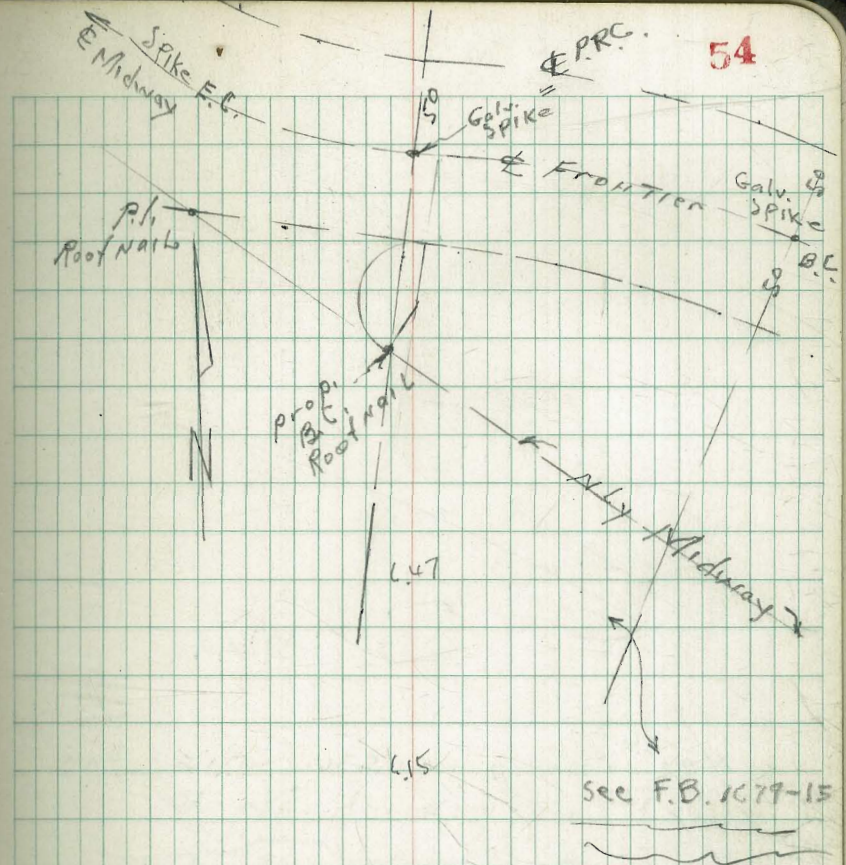 54
℄ P.R.C.
Spike E.C.
℄ Midway
50
Galv.
Spike
℄ Frontier
Galv.
Spike
50
B.C.
50
P.I.
Roof Nail
Prop.
B.C.
Roof Nail
N
Nly Midway
6.47
6.15
See F.B. 1679-15